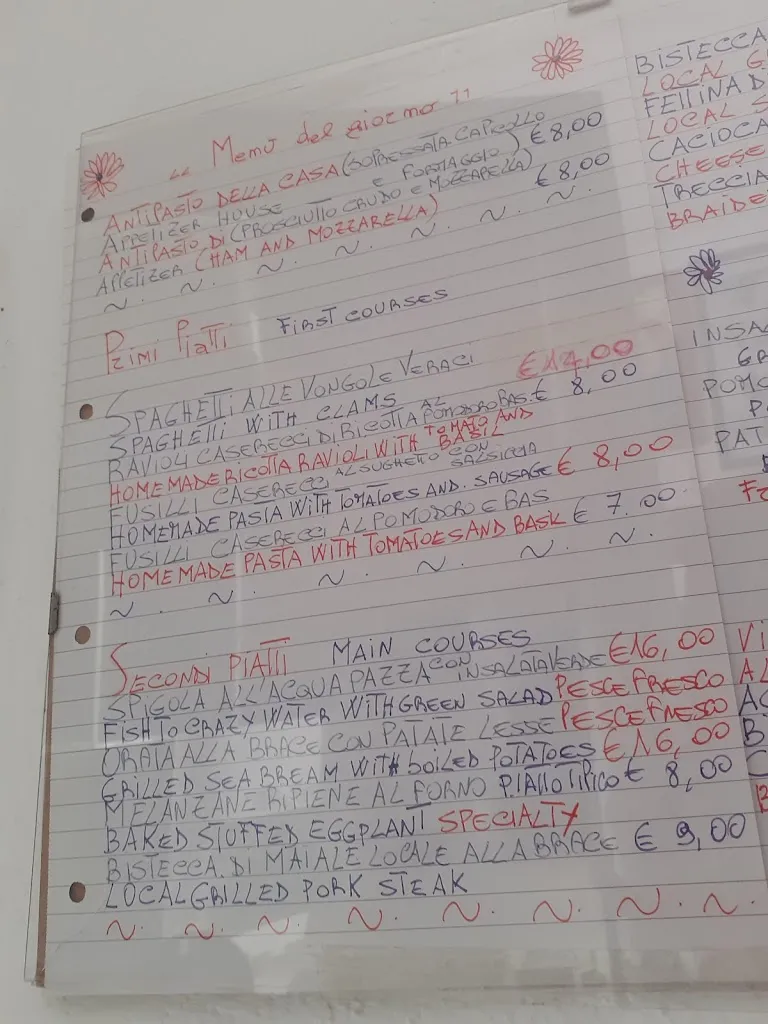 " Menu del giorno "
ANTIPASTO DELLA CASA (SOPRESSATA CAPICOLLO E FORMAGGIO) € 8,00
APPETIZER HOUSE
ANTIPASTO DI (PROSCIUTTO CRUDO E MOZZARELLA) € 8,00
APPETIZER (HAM AND MOZZARELLA)
Primi Piatti FIRST COURSES
SPAGHETTI ALLE VONGOLE VERACI €14,00
SPAGHETTI WITH CLAMS
RAVIOLI CASERECCI DI RICOTTA AL POMODORO BAS. € 8,00
HOMEMADE RICOTTA RAVIOLI WITH TOMATO AND BASIL
FUSILLI CASERECCI AL SUGHETTO CON SALSICCIA
HOMEMADE PASTA WITH TOMATOES AND. SAUSAGE € 8,00
FUSILLI CASERECCI AL POMODORO E BAS
HOMEMADE PASTA WITH TOMATOES AND BASIL € 7.00
SECONDI PIATTI MAIN COURSES
SPIGOLA ALL'ACQUA PAZZA CON INSALATA VERDE €16,00
FISH TO CRAZY WATER WITH GREEN SALAD PESCE FRESCO
ORATA ALLA BRACE CON PATATE LESSE PESCE FRESCO
GRILLED SEA BREAM WITH boiLED POTATOES €16,00
MELANZANE RIPIENE AL FORNO PIATTO TIPICO € 8,00
BAKED STUFFED EGGPLANT SPECIALTY
BISTECCA. DI MAIALE LOCALE ALLA BRACE € 9,00
LOCAL GRILLED PORK STEAK
BISTECCA
LOCAL G
FETTINA D
LOCAL S
CACIOCA
CHEESE
TRECCIA
BRAIDE
INSA
GR
POMO
P
PAT